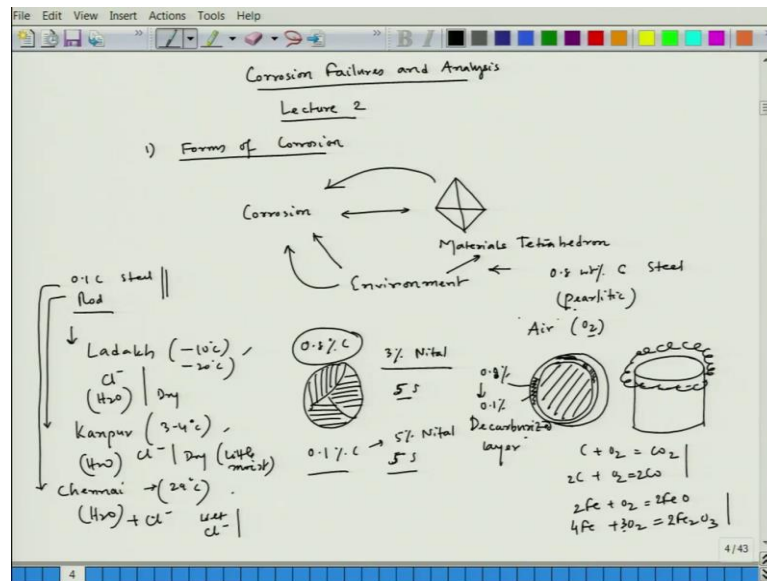 File Edit View Insert Actions Tools Help
Corrosion Failures and Analysis
Lecture 2
1) Forms of Corrosion
Corrosion
Materials Tetrahedron
Environment
0.8 wt% C Steel
(pearlitic)
Air (O2)
0.1 C Steel
Rod
Ladakh (-10°C)
-20°C)
Cl-
(H2O) Dry
Kanpur (3-4°C)
(H2O) Cl- Dry (little moist)
Chennai → (29°C)
(H2O) + Cl- wet
Cl-
0.8% C
3% Nital
5 S
0.1% C → 5% Nital
5 S
0.8%
↓
0.1%
Decarburized
layer
C + O2 = CO2
2C + O2 = 2CO
2Fe + O2 = 2FeO
4Fe + 3O2 = 2Fe2O3
4/43
4